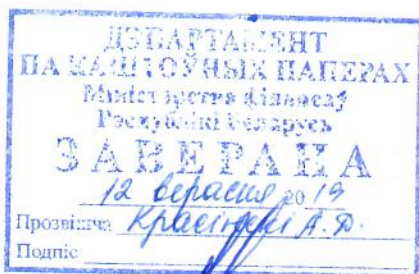 ДЭПАРТАМЕНТ
ПА КАШТОЎНЫХ ПАПЕРАХ
Міністэрства фінансаў
Рэспублікі Беларусь
ЗАВЕРАНА
12 верасня 2019
Прозвішча Красінскі А.Ф.
Подпіс